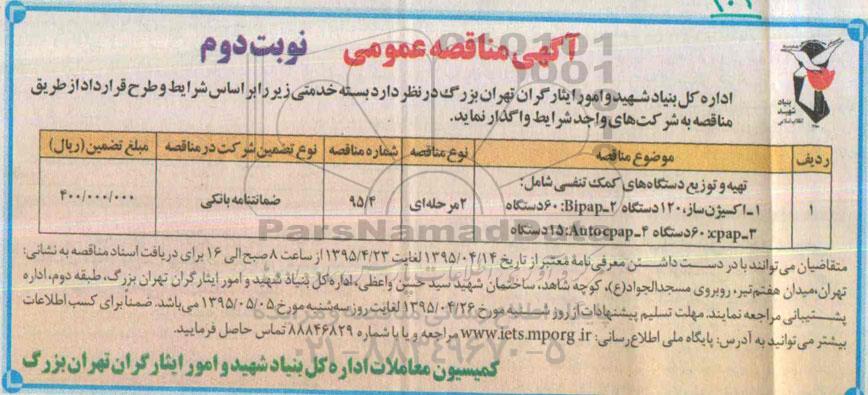 ۱۰۲
آگهی مناقصه عمومی نوبت دوم
بنیاد شهید
انقلاب اسلامی
اداره کل بنیاد شهید و امور ایثارگران تهران بزرگ در نظر دارد بسته خدمتی زیر را بر اساس شرایط و طرح قرارداد از طریق
مناقصه به شرکت‌های واجد شرایط واگذار نماید.
ردیف موضوع مناقصه نوع مناقصه شماره مناقصه نوع تضمین شرکت در مناقصه مبلغ تضمین (ریال)
۱ تهیه و توزیع دستگاه‌های کمک تنفسی شامل:
۱-اکسیژن‌ساز، ۱۲۰ دستگاه ۲-Bipap: ۶۰ دستگاه
۳-cpap: ۶۰ دستگاه ۴-Autocpap: ۱۵ دستگاه
۲ مرحله‌ای ۹۵/۴ ضمانتنامه بانکی ۴۰۰/۰۰۰/۰۰۰
متقاضیان می‌توانند با در دست داشتن معرفی‌نامهٔ معتبر از تاریخ ۱۳۹۵/۰۴/۱۴ لغایت ۱۳۹۵/۴/۲۳ از ساعت ۸ صبح الی ۱۶ برای دریافت اسناد مناقصه به نشانی:
تهران، میدان هفتم‌تیر، روبروی مسجدالجواد(ع)، کوچه شاهد، ساختمان شهید سید حسن واعظی، اداره کل بنیاد شهید و امور ایثارگران تهران بزرگ، طبقه دوم، اداره
پشتیبانی مراجعه نمایند. مهلت تسلیم پیشنهادات از روز شنبه مورخ ۱۳۹۵/۰۴/۲۶ لغایت روز سه‌شنبه مورخ ۱۳۹۵/۰۵/۰۵ می‌باشد. ضمناً برای کسب اطلاعات
بیشتر می‌توانید به آدرس: پایگاه ملی اطلاع‌رسانی: www.iets.mporg.ir مراجعه و یا با شماره ۸۸۸۴۶۸۲۹ تماس حاصل فرمایید.
کمیسیون معاملات اداره کل بنیاد شهید و امور ایثارگران تهران بزرگ
ParsNamadData
۰۲۱-۸۸۳۴۹۶۷۰-۵